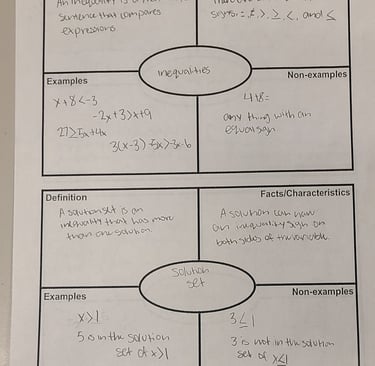 An inequality is a
sentence that compares
expressions
signs: =, ≠, >, ≥, <, and ≤
Inequalities
Examples
x+8<-3
-2x+3>x+9
27≥5x+4x
3(x-3)-5x>-3x-6
Non-examples
4+8=
any thing with an
equal sign
Definition
A solution set is an
inequality that has more
than one solution.
Facts/Characteristics
A solution can have
an inequality sign on
both sides of the variable.
Solution
set
Examples
x>1
5 is in the solution
set of x>1
Non-examples
3≤1
3 is not in the solution
set of x≤1